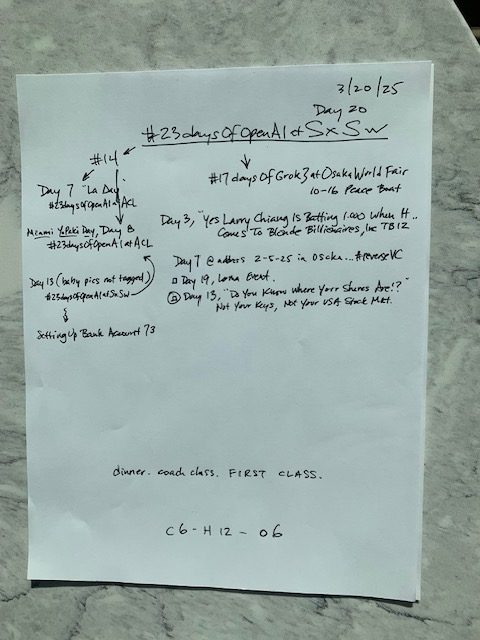 3/20/25
Day 20
#23daysOfOpenAIatSxSw
#14
Day 7 "La Day"
#23daysOfOpenAIatACL
Miami Day, Day 8
#23daysOfOpenAIatACL
Day 13 (baby pics not tagged)
#23daysOfOpenAIatSxSw
Setting Up Bank Account 73
#17daysOfGrok3atOsakaWorldFair
10-16 Peace Boat
Day 3, "Yes Larry Chiang Is Batting 1.000 When H..
Comes To Blonde Billionaires, Inc TB12
Day 7 @ 2-5-25 in Osaka...#reverseVC
Day 19, Event.
Day 13, "Do You Know Where Your Shares Are!?"
Not Your Keys, Not Your USA Stock Mkt.
dinner. coach class. FIRST CLASS.
C6-H12-06